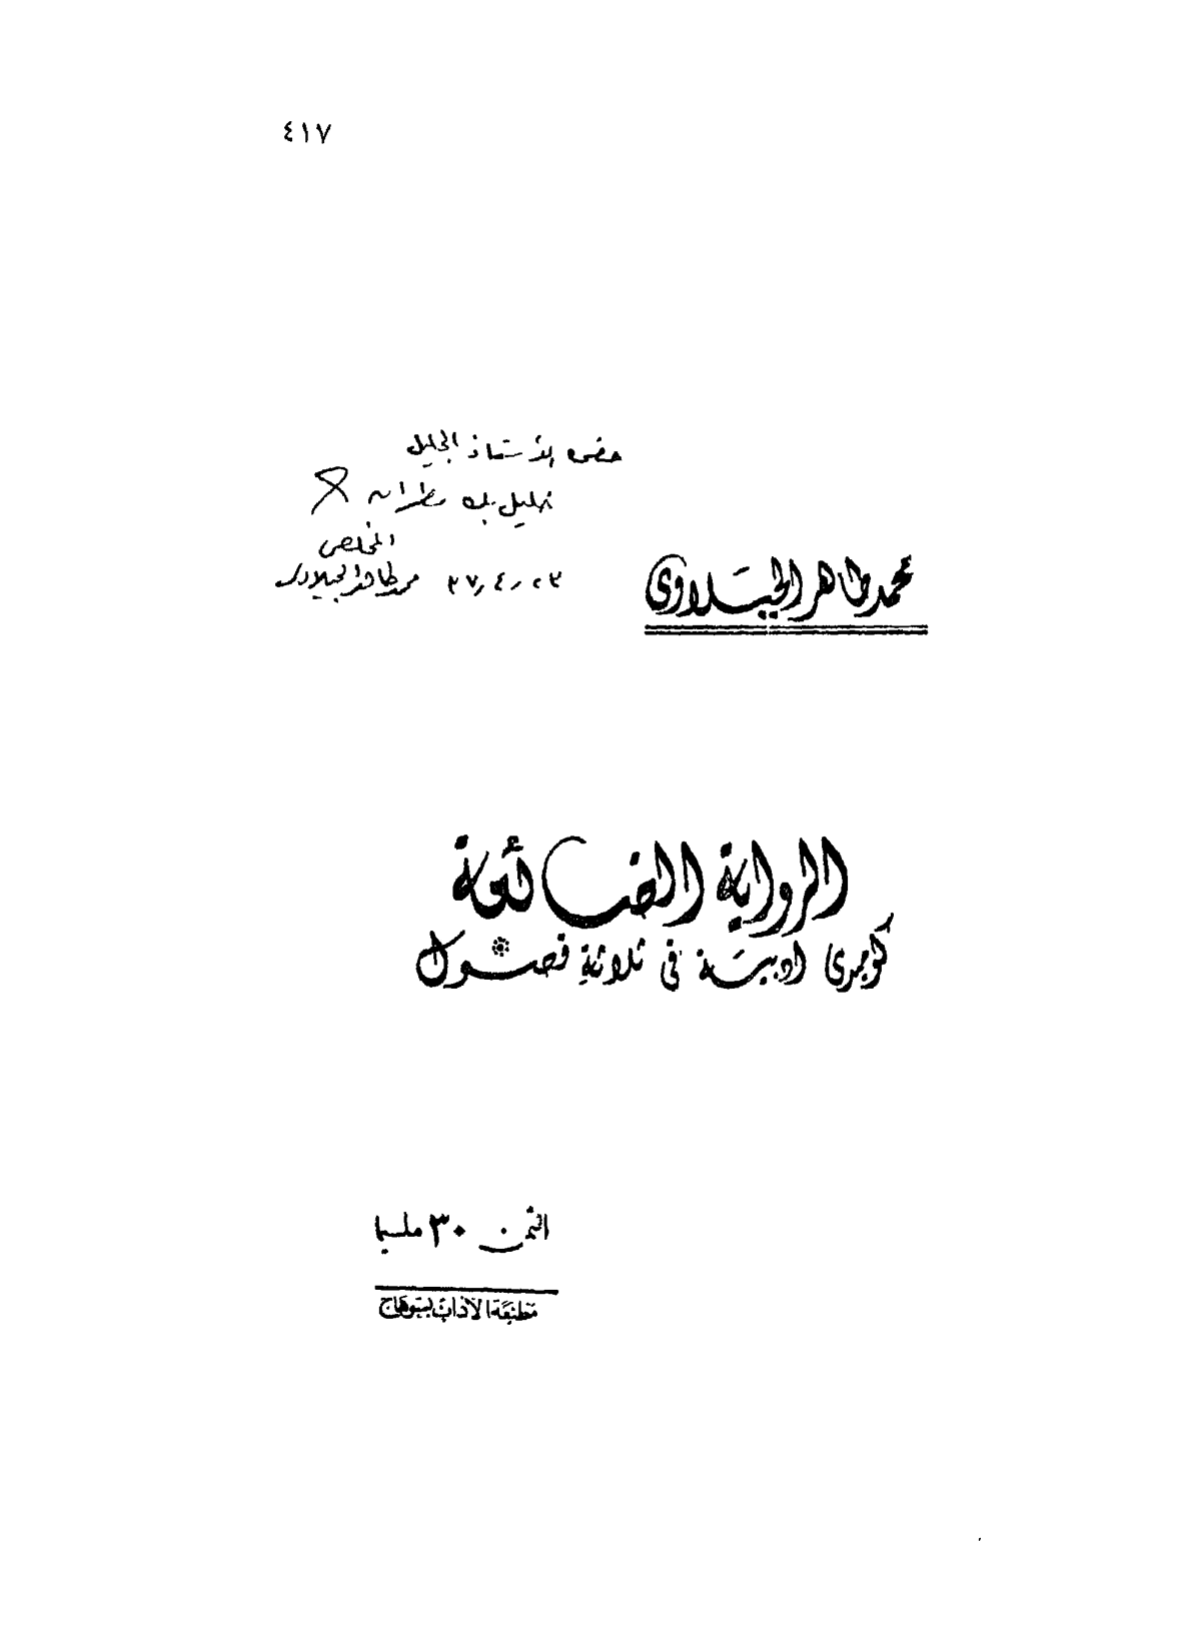 ٤١٧
حضرة الأستاذ الجليل
خليل بك مطران
المخلص
محمد طاهر الجبلاوى
محمد طاهر الجبلاوى
الرواية الضائعة
كوميدى ادبية فى ثلاثة فصول
الثمن ٣٠ مليما
مطبعة الآداب بسوهاج